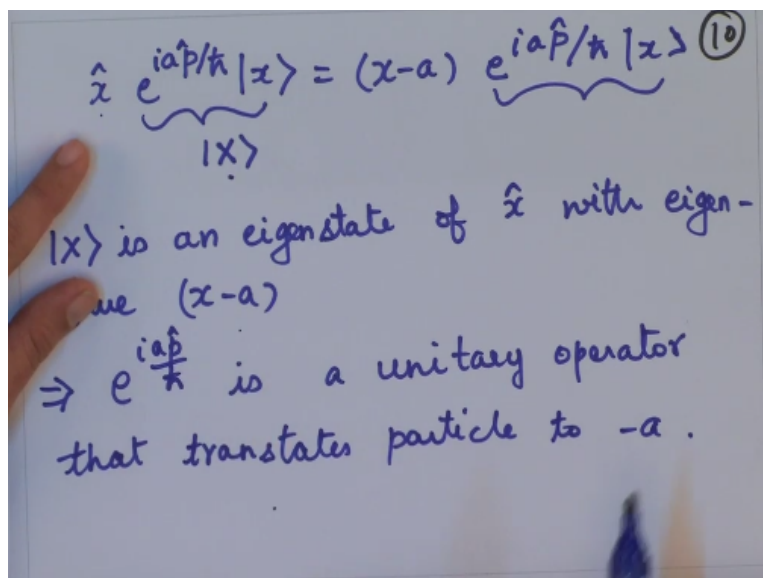 x̂ e^{iap̂/ħ} |x⟩ = (x-a) e^{iap̂/ħ} |x⟩ 10
|X⟩
|X⟩ is an eigenstate of x̂ with eigen-
ue (x-a)
⇒ e^{iap̂/ħ} is a unitary operator
that transtates particle to -a .